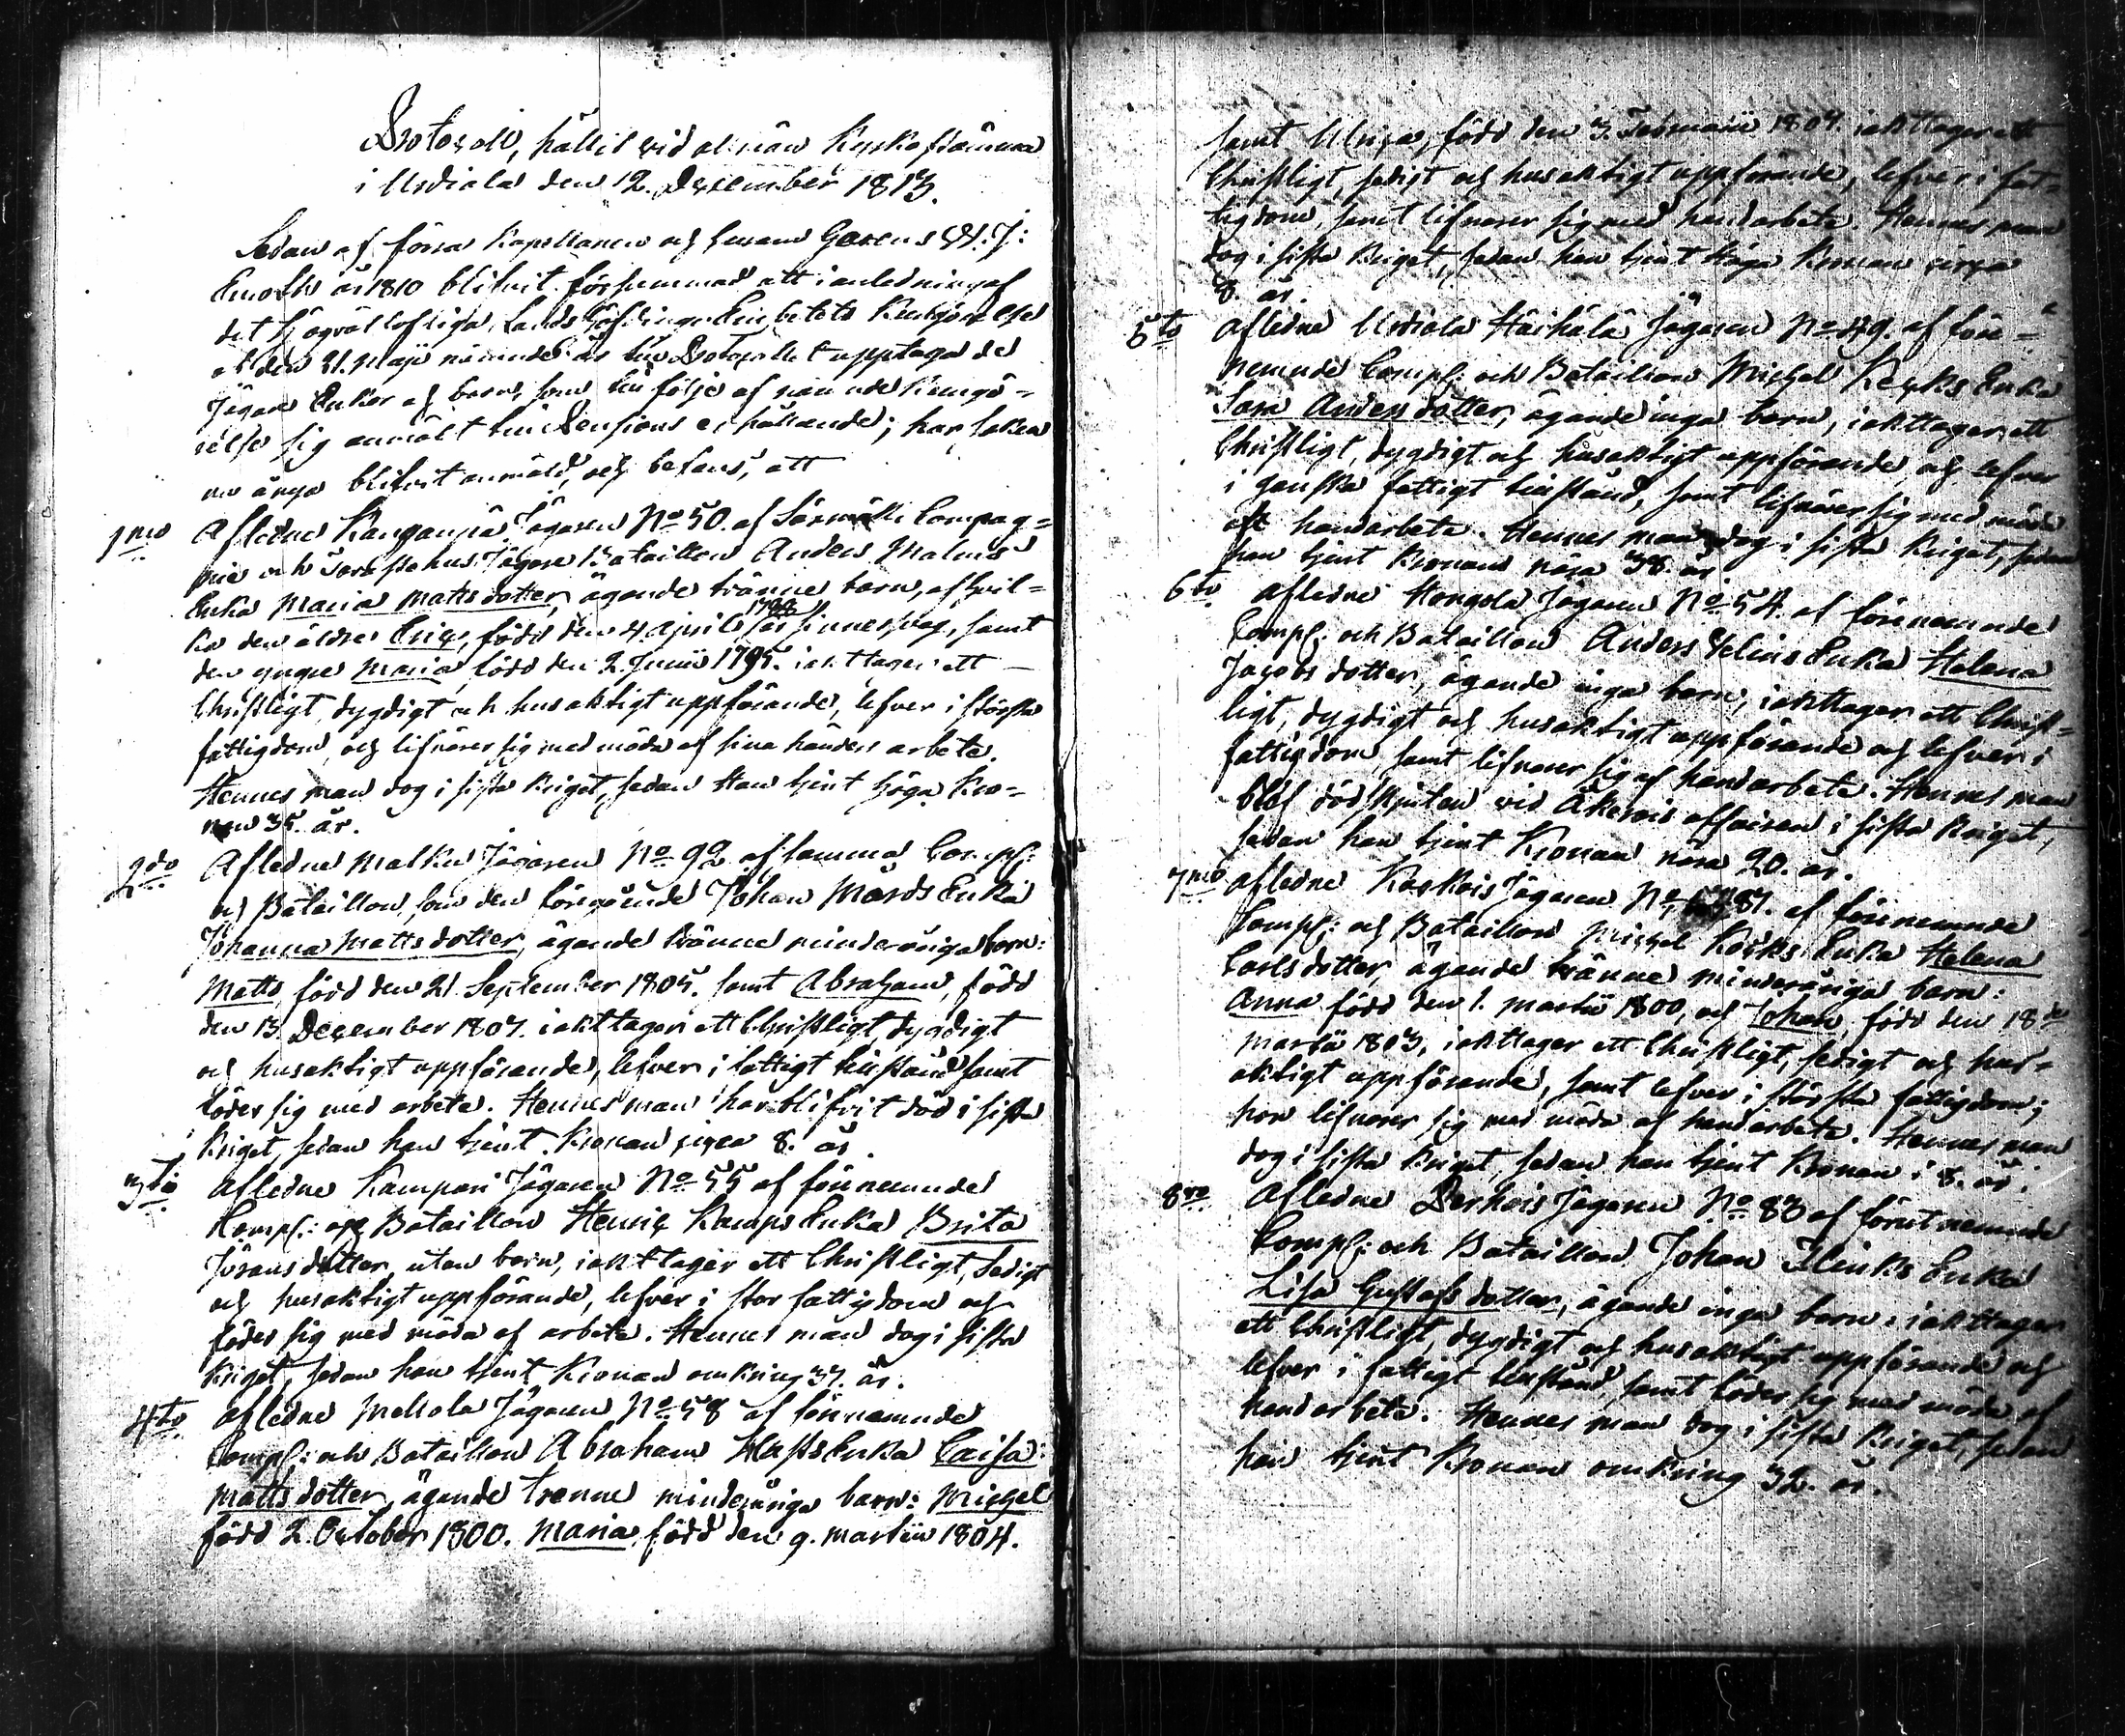 Protocoll, hållit vid allmän Kyrkostämma
i Urdiala den 12. December 1813.
Sedan af förra Kapellanen och
år 1810 blifvit försummad att i anledning af
det Högvällofliga Lands Höfdinge Embetets Kungörelse
af den 21. Maji nämnde år till Protocollet upptaga de
Jägare Enkor och barn, som till följe af nämnde Kungö-
relse sig anmält till Pensions erhållande; har saken
nu ånyo blifvit anmäld, och befans, att
1mo Afledne Kanganpää Jägaren No 50. af Särmäki Compag-
nie och Björneborgs Jägare Bataillon Anders Malms
Enka Maria Mattsdotter, ägande tvänne barn, af hvil-
ka den äldre Eric, född den 4 April 1788 är sinnessvag, samt
den yngre Maria, född den 2. Junii 1795. iakttager ett
Christligt, dygdigt och husaktigt uppförande, lefver i största
fattigdom, och lifnärer sig med möda af sina händers arbete.
Hennes man dog i sista Kriget, sedan Han tjent höga Kro-
nan 35. år.
2do Afledne Malku Jägaren No 92. af samma Comp:
och Bataillon, som den föregående Johan Mårds Enka
Johanna Mattsdotter, ägande tvänne minderåriga barn:
Matts, född den 21. September 1805. samt Abraham, född
den 13. December 1807. iakttager ett Christligt, dygdigt
och husaktigt uppförande, lefver i fattigt tillstånd samt
föder sig med arbete. Hennes man har blifvit död i sista
Kriget, sedan han tjent Kronan circa 8. år.
3tio Afledne Kampari Jägaren No 55 af förenemnde
Comp: och Bataillon Henric Kamps Enka Brita
Jöransdotter, utan barn, iakttager ett Christligt, sedigt
och husaktigt uppförande, lefver i stor fattigdom och
föder sig med möda af arbete. Hennes man dog i sista
Kriget, sedan han tjent Kronan omkring 37. år.
4to Afledne Mellola Jägaren No 58 af förenemnde
Comp: och Bataillon Abraham Hafts Enka Caisa
Mattsdotter, ägande trenne minderåriga barn: Michel
född 2. October 1800. Maria, född den 9. Martii 1804.
samt Ulrica, född den 3. Februarii 1807. iakttager ett
Christligt, sedigt och husaktigt uppförande, lefver i fat-
tigdom, samt lifnärer sig med handarbete. Hennes man
dog i sista Kriget, sedan han tjent Höga Kronan circa
8. år.
5to Afledne Urdiala Härhälä Jägaren No 49. af före-
nemnde Comp: och Bataillon Michel Kercks Enka
Sara Andersdotter, ägande inga barn, iakttager ett
Christligt, dygdigt och husaktigt uppförande och lefver
i ganska fattigt tillstånd, samt lifnärer sig med möda
af handarbete. Hennes man dog i sista Kriget, sedan
han tjent Kronan nära 38. år
6to Afledne Hongola Jägaren No 54. af förenemnde
Comp: och Bataillon Anders Enka Helena
Jacobsdotter, ägande inga barn, iakttager ett Christ-
ligt, dygdigt och husaktigt uppförande och lefver i
fattigdom samt lifnärer sig af handarbete. Hennes man
blef dödskjuten vid affairen i sista Kriget,
sedan han tjent Kronan nära 20. år.
7mo Afledne Kaskois Jägaren No 87. af förenemnde
Comp: och Bataillon Michel Enka Helena
Carlsdotter, ägande tvänne minderåriga barn:
Anna född den 1. Martii 1800, och Johan, född den 18de
Martii 1803, iakttager ett Christligt, sedigt och hus-
aktigt uppförande, samt lefver i största fattigdom;
hon lifnärer sig med möda af handarbete. Hennes man
dog i sista Kriget, sedan han tjent Kronan i 8. år.
8vo Afledne Perkois Jägaren No 83 af förutnemnde
Comp: och Bataillon Johan Enka
Lisa Gustafsdotter, ägande inga barn: iakttager
ett Christligt, dygdigt och husaktigt uppförande och
lefver i fattigt tillstånd, samt föder sig med möda af
handarbete. Hennes man dog i sista Kriget, sedan
han tjent Kronan omkring 32. år.